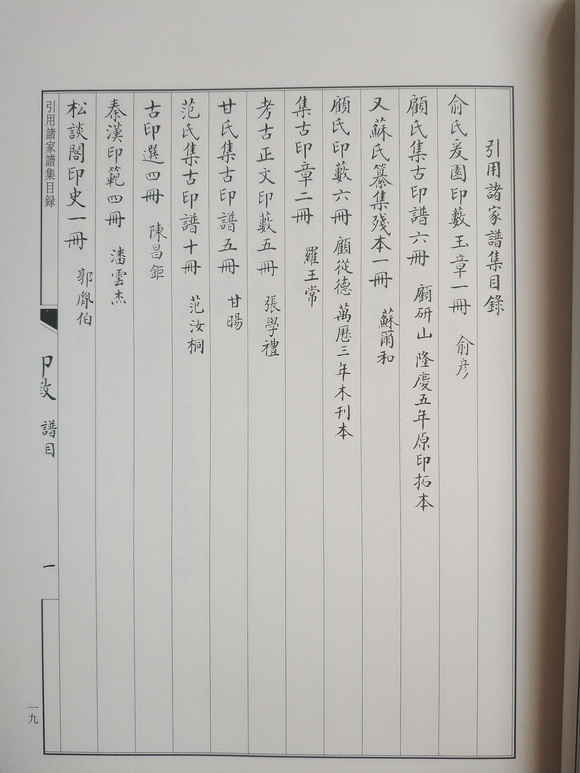 引用諸家譜集目錄
俞氏爰園印藪玉章一冊 俞彦
顧氏集古印譜六冊 顧研山 隆慶五年原印拓本
又蘇氏纂集殘本一冊 蘇爾和
顧氏印藪六冊 顧從德 萬歷三年木刊本
集古印章二冊 羅王常
考古正文印藪五冊 張學禮
甘氏集古印譜五冊 甘暘
范氏集古印譜十冊 范汝桐
古印選四冊 陳昌鉅
秦漢印範四冊 潘雲杰
松談閣印史一冊 郭胤伯
引用諸家譜集目錄
譜目
一
一九